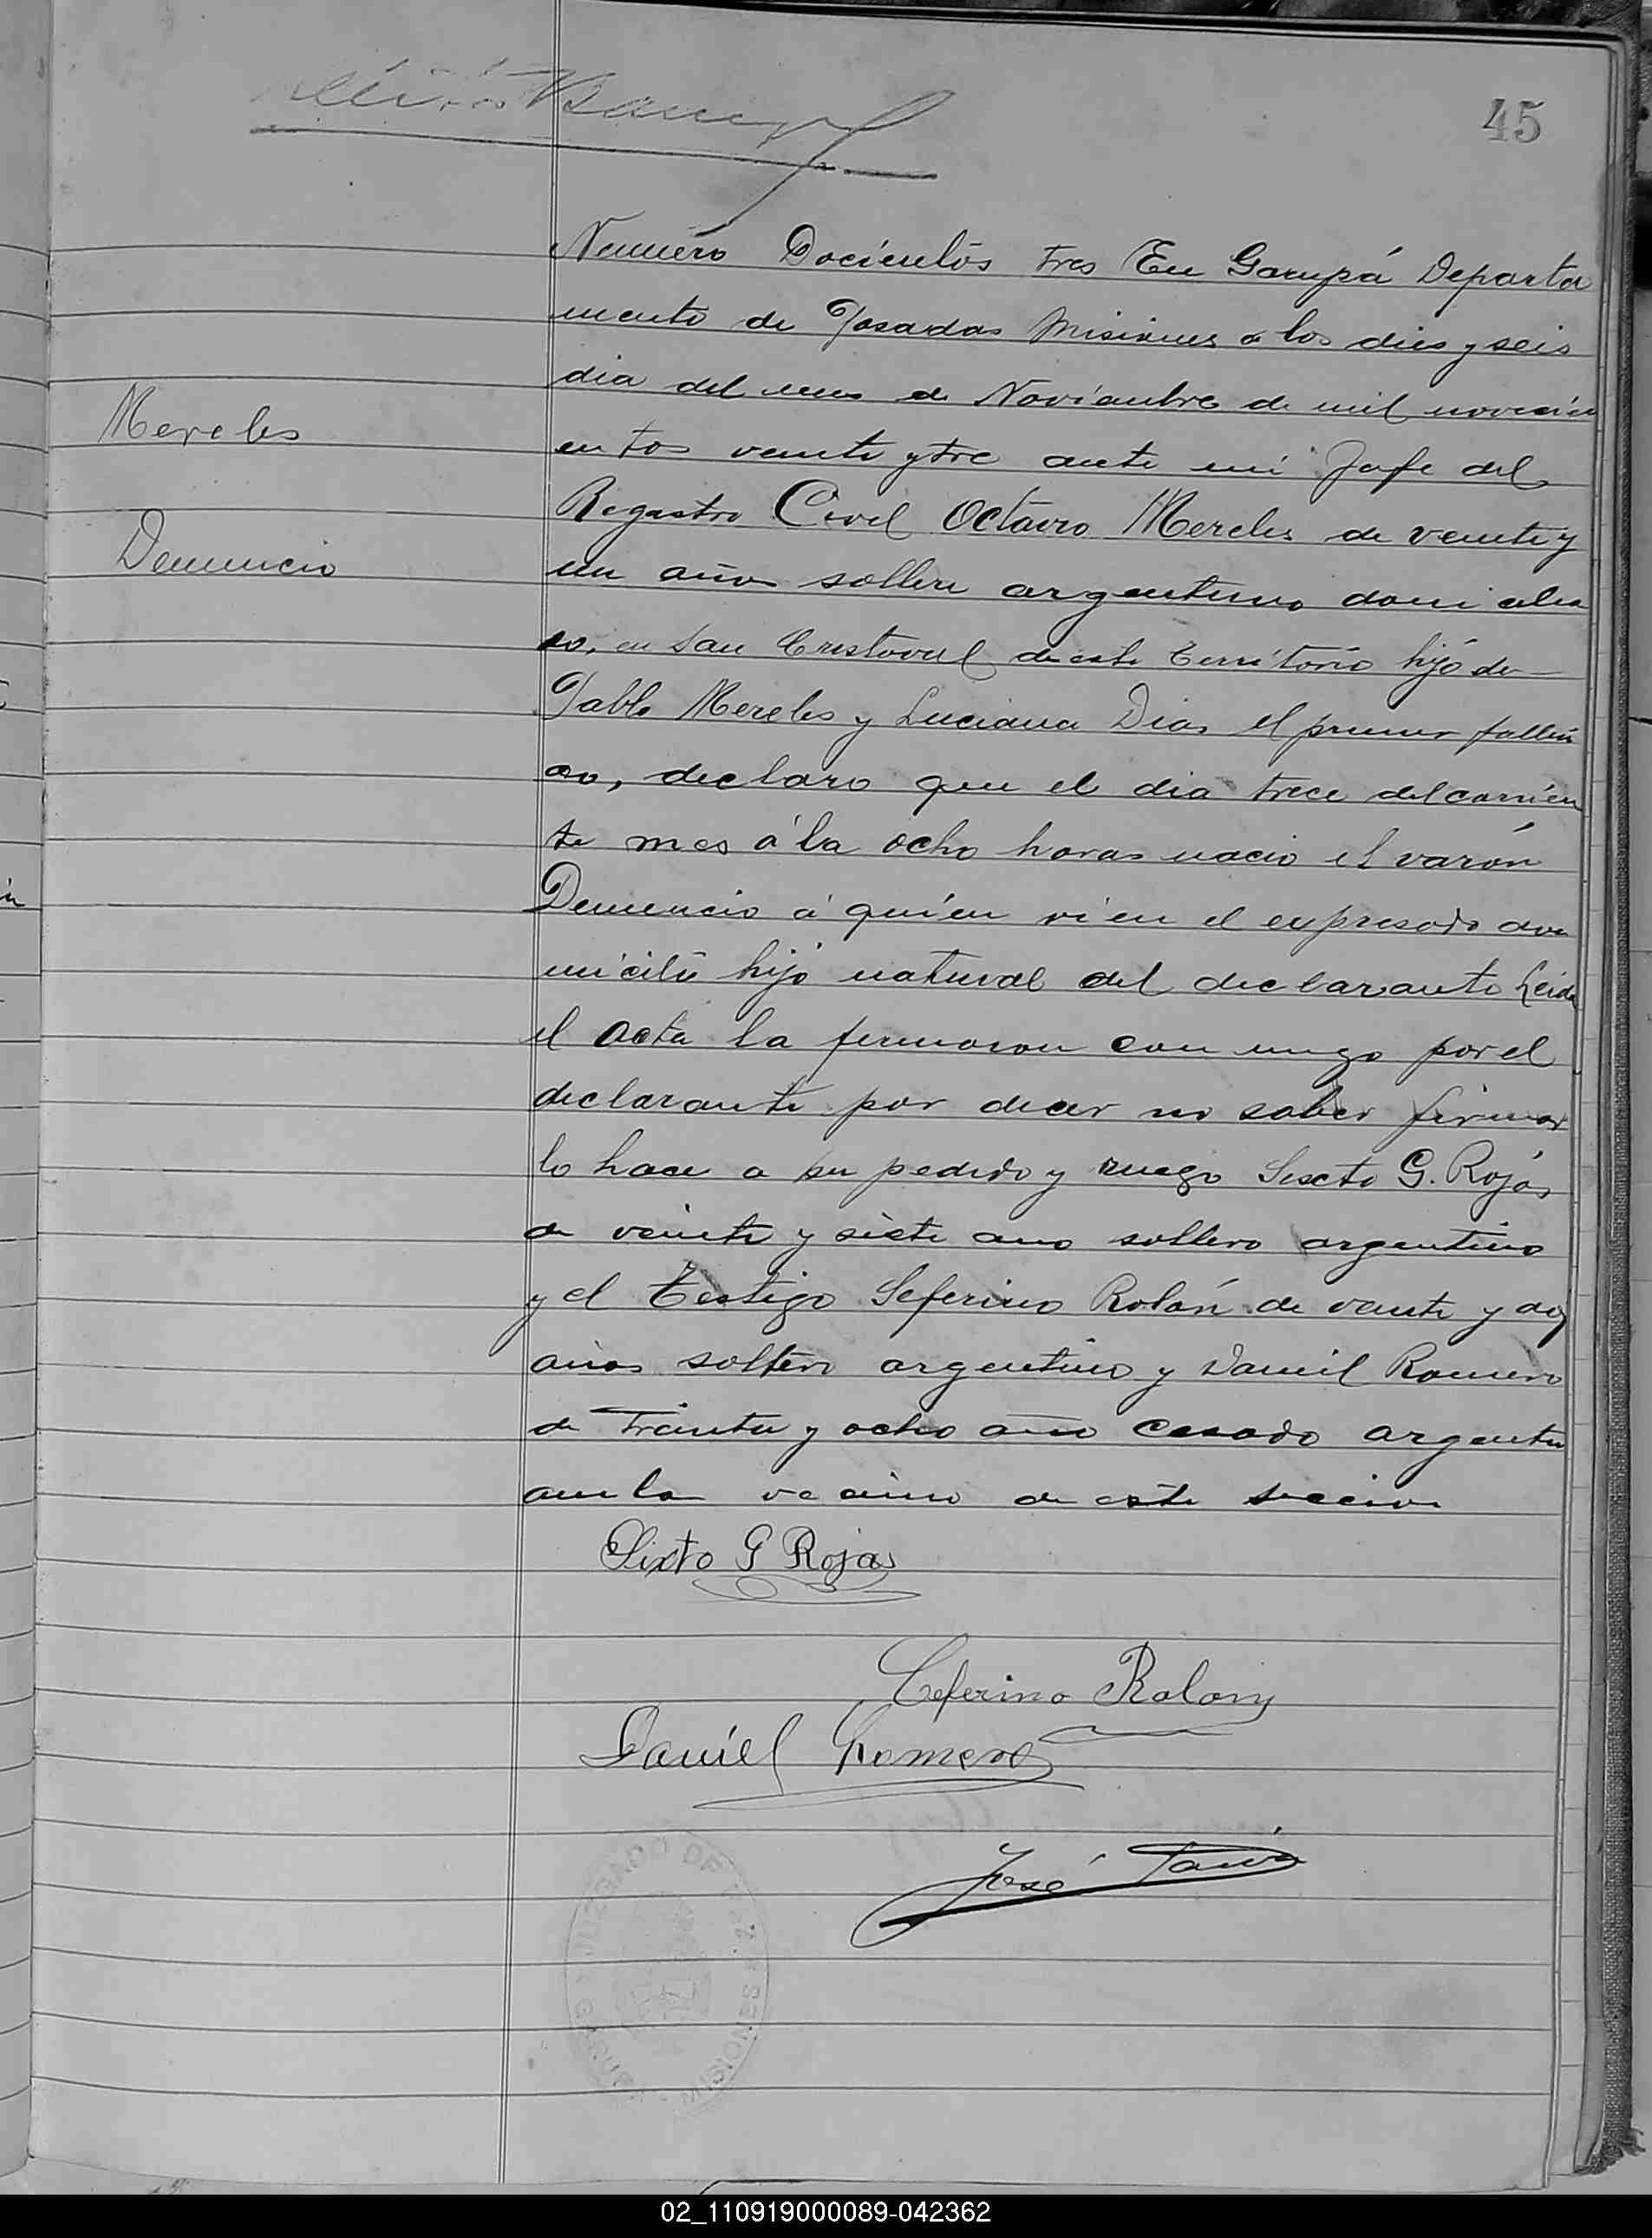 45
Numéro Docíentós tres En Garupá Departa
mento de Posadas Misiones a los dies y seis
dia del mes de Noviembre de mil noveciē
Mereles
entos veinte y tre ante mi Jefe del
Registro Civil Octavio Mereles de veinte y
Demencio
un años soltero argentino domicilia
do, en San Cristoval de este Territorio hijo de
Pablo Mereles y Luciana Dias el primer falleci
do, declaro que el dia trece del corrien
te mes á la ocho horas nacio el varón
Demencio á quien vi en el expresado do
micilio hijo natural del declarante Leida
el acta la firmaron con migo por el
declarante por decir no saber firmar
lo hace a su pedido y ruego Sexto G. Rojas
de veinte y siete ano soltero argentino
y el Testigo Seferino Rolón de veinte y dos
años soltero argentino y Daniel Romero
de treinta y ocho año casado argentin
ambo vecino de este seccion
Sixto G Rojas
Ceferino Rolon
Daniel Romero
José
JUZGADO DE PAZ
MISIONES
02_110919000089-042362